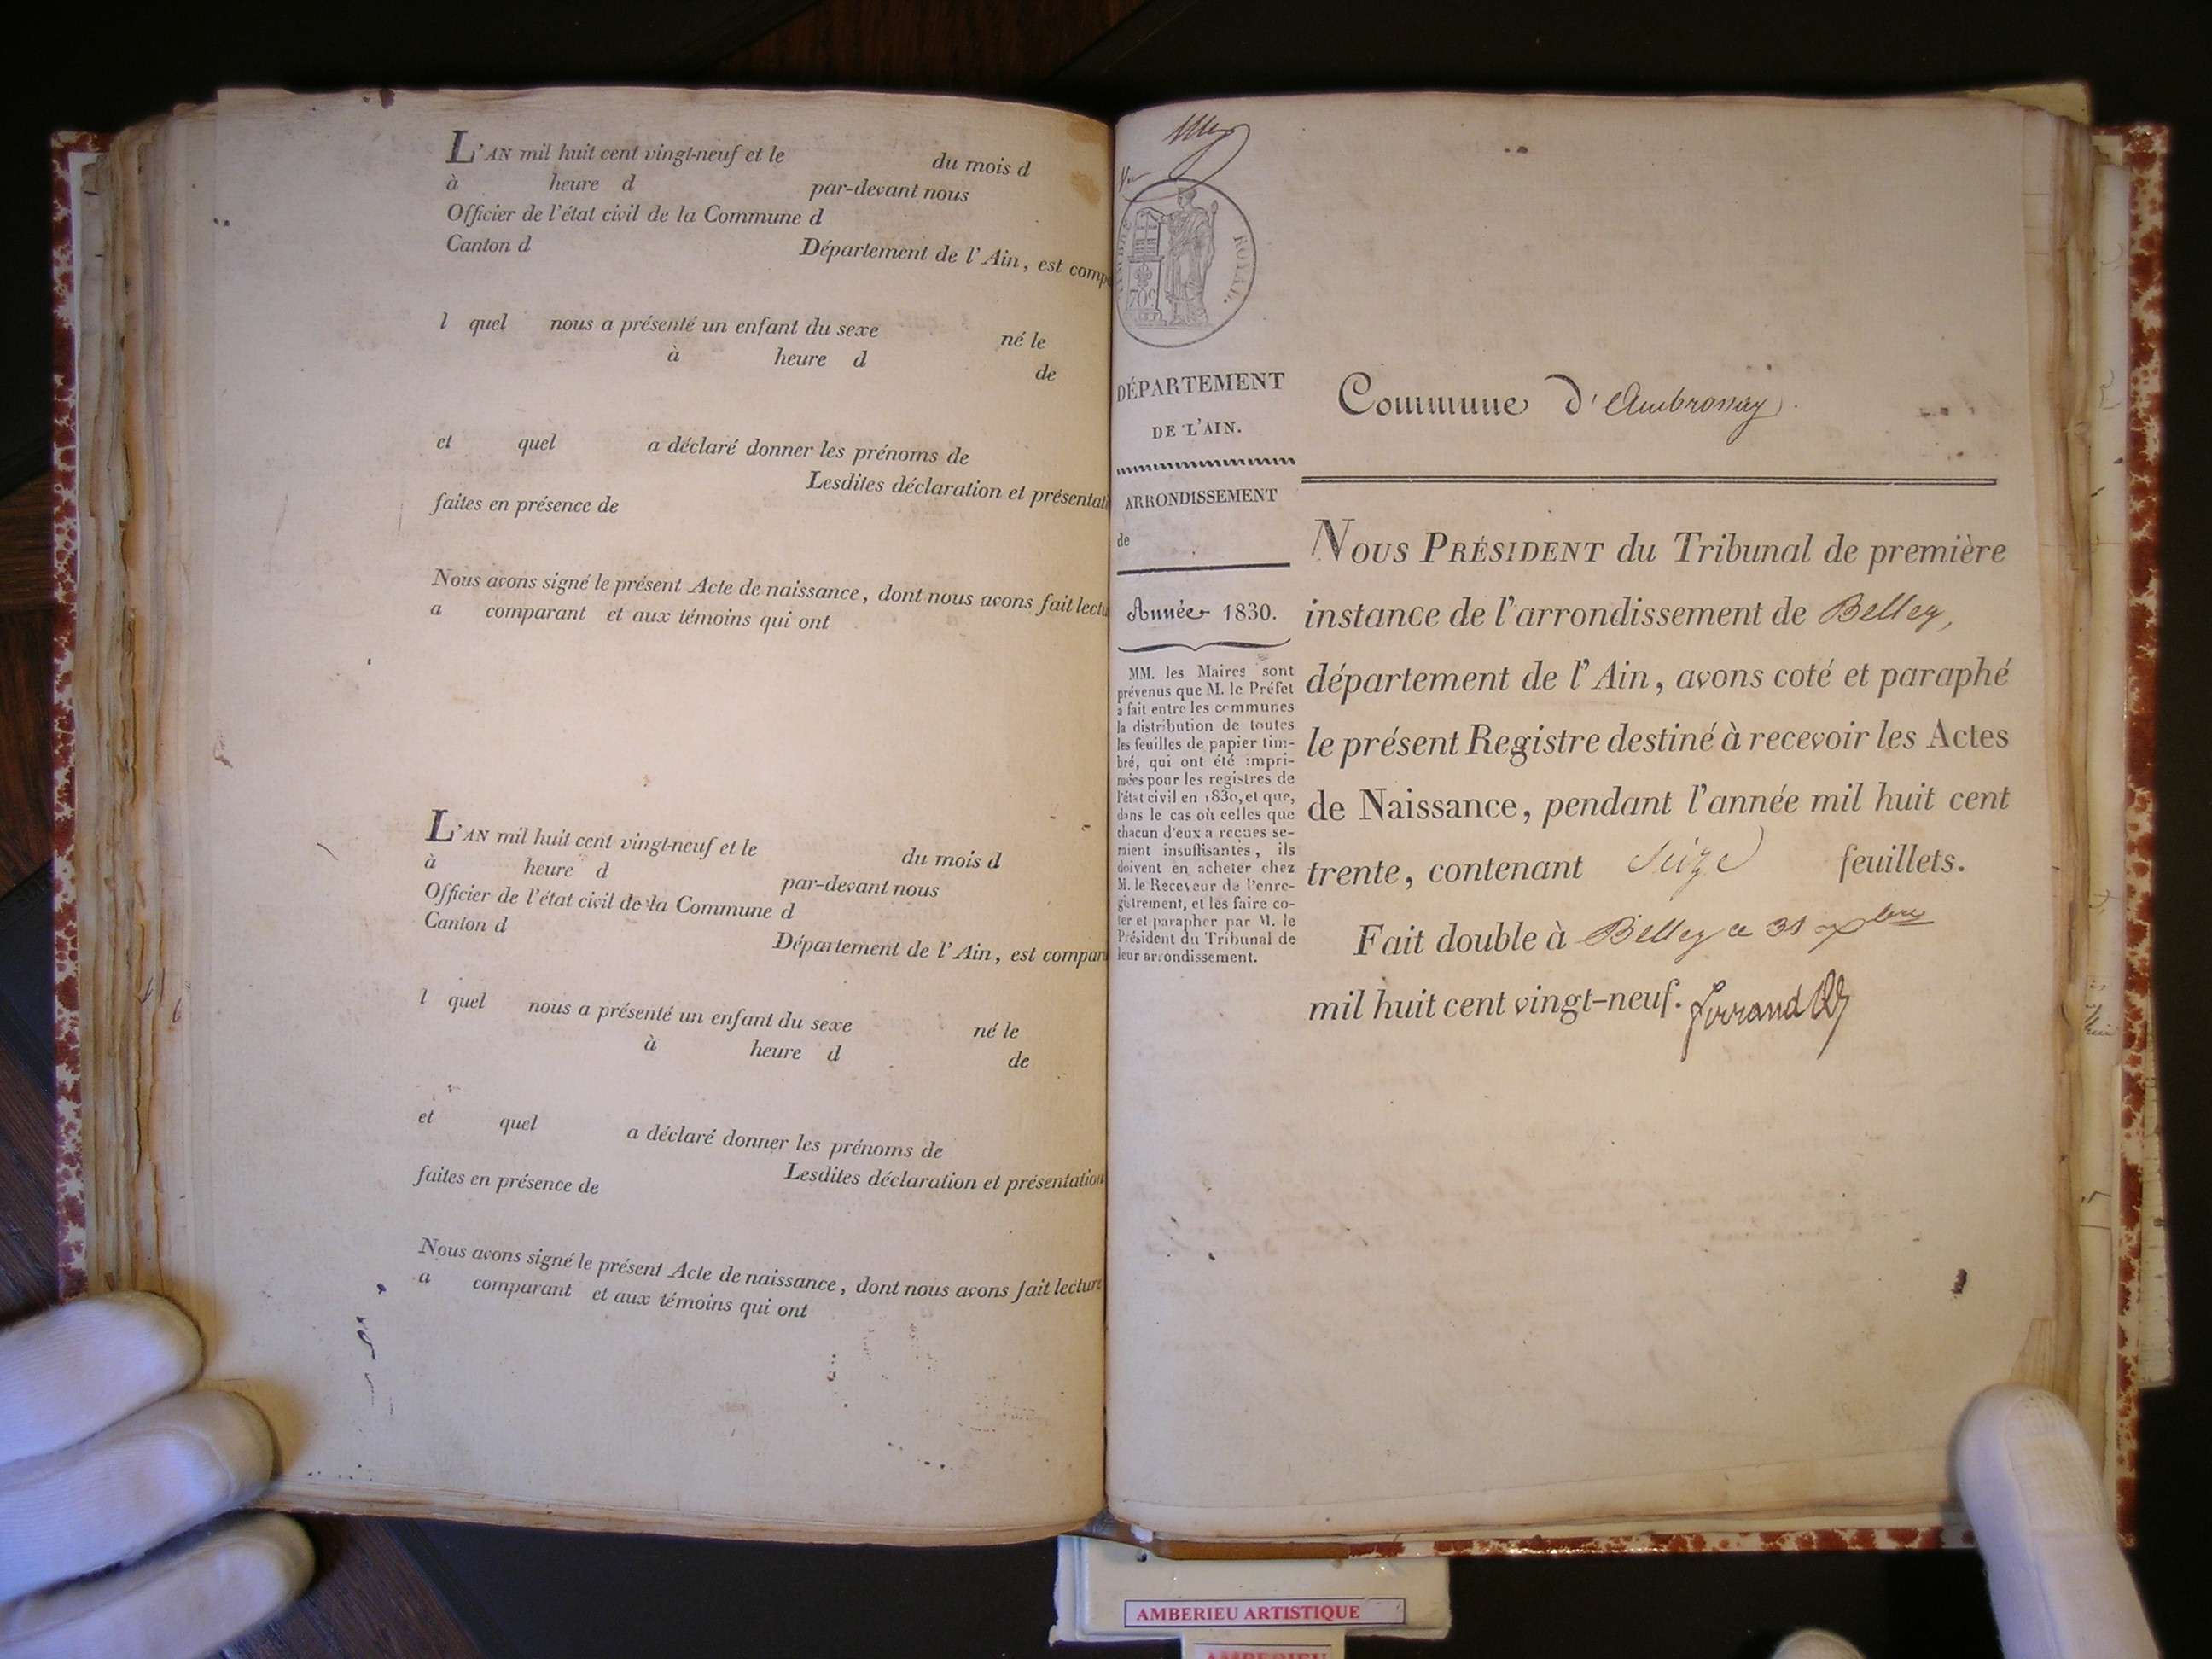 L'AN mil huit cent vingt-neuf et le du mois d
à heure d par-devant nous
Officier de l'état civil de la Commune d
Canton d Département de l'Ain, est comp
l quel nous a présenté un enfant du sexe né le
à heure d de
et quel a déclaré donner les prénoms de
Lesdites déclaration et présentati
faites en présence de
Nous avons signé le présent Acte de naissance, dont nous avons fait lectu
a comparant et aux témoins qui ont
L'AN mil huit cent vingt-neuf et le du mois d
à heure d par-devant nous
Officier de l'état civil de la Commune d
Canton d Département de l'Ain, est compar
l quel nous a présenté un enfant du sexe né le
à heure d de
et quel a déclaré donner les prénoms de
Lesdites déclaration et présentation
faites en présence de
Nous avons signé le présent Acte de naissance, dont nous avons fait lecture
a comparant et aux témoins qui ont
ROYAL.
70c
DÉPARTEMENT
DE L'AIN.
ARRONDISSEMENT
de
Année 1830.
MM. les Maires sont
prévenus que M. le Préfet
a fait entre les communes
la distribution de toutes
les feuilles de papier tim-
bré, qui ont été impri-
mées pour les registres de
l'état civil en 1830, et que,
dans le cas où celles que
chacun d'eux a reçues se-
raient insuffisantes, ils
doivent en acheter chez
M. le Receveur de l'enre-
gistrement, et les faire co-
ter et parapher par M. le
Président du Tribunal de
leur arrondissement.
Commune d'Ambronay.
NOUS PRÉSIDENT du Tribunal de première
instance de l'arrondissement de Belley,
département de l'Ain, avons coté et paraphé
le présent Registre destiné à recevoir les Actes
de Naissance, pendant l'année mil huit cent
trente, contenant Seize feuillets.
Fait double à Belley ce 31 xbre
mil huit cent vingt-neuf.
AMBERIEU ARTISTIQUE
AMBERIEU